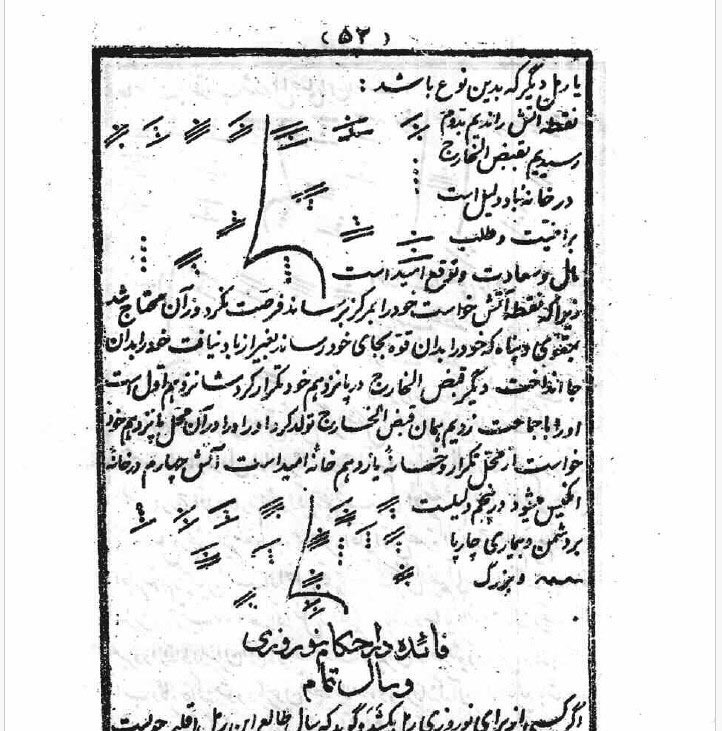 (۵۲)
یا رمل دیگر که بدین نوع باشد :
نقطه آتش راندیم
رسیدیم بقبض الخارج
در خانه باد دلیل است
بر امنیت و طلب
مال و سعادت و توقع امید است
زیرا که نقطه آتش خواست خود را بمرکز برساند فرصت نکرد و در آن محتاج شد
بمقوی و پناه که خود را بدان قوة بجای خود رساند بغیر از باد نیافت خود را بدان
جا انداخت دیگر قبض الخارج در پانزدهم خود تکرار کرد شانزدهم اول است
او را با جماعت زدیم همان قبض الخارج تولد کرد او را در آن محل پانزدهم خود
خواست از محل تکرار و خانه یازدهم خانه امید است آتش چهارم در خانه
انکیس میشود در پنجم دلیلست
بر دشمن و بیماری چارپا
و بزرگ
فائده در احکام نوروزی
و سال تمام
اگر کسی از برای نوروزی رمل بکشد و گوید که سال طالع این رمل باقلیم چونست